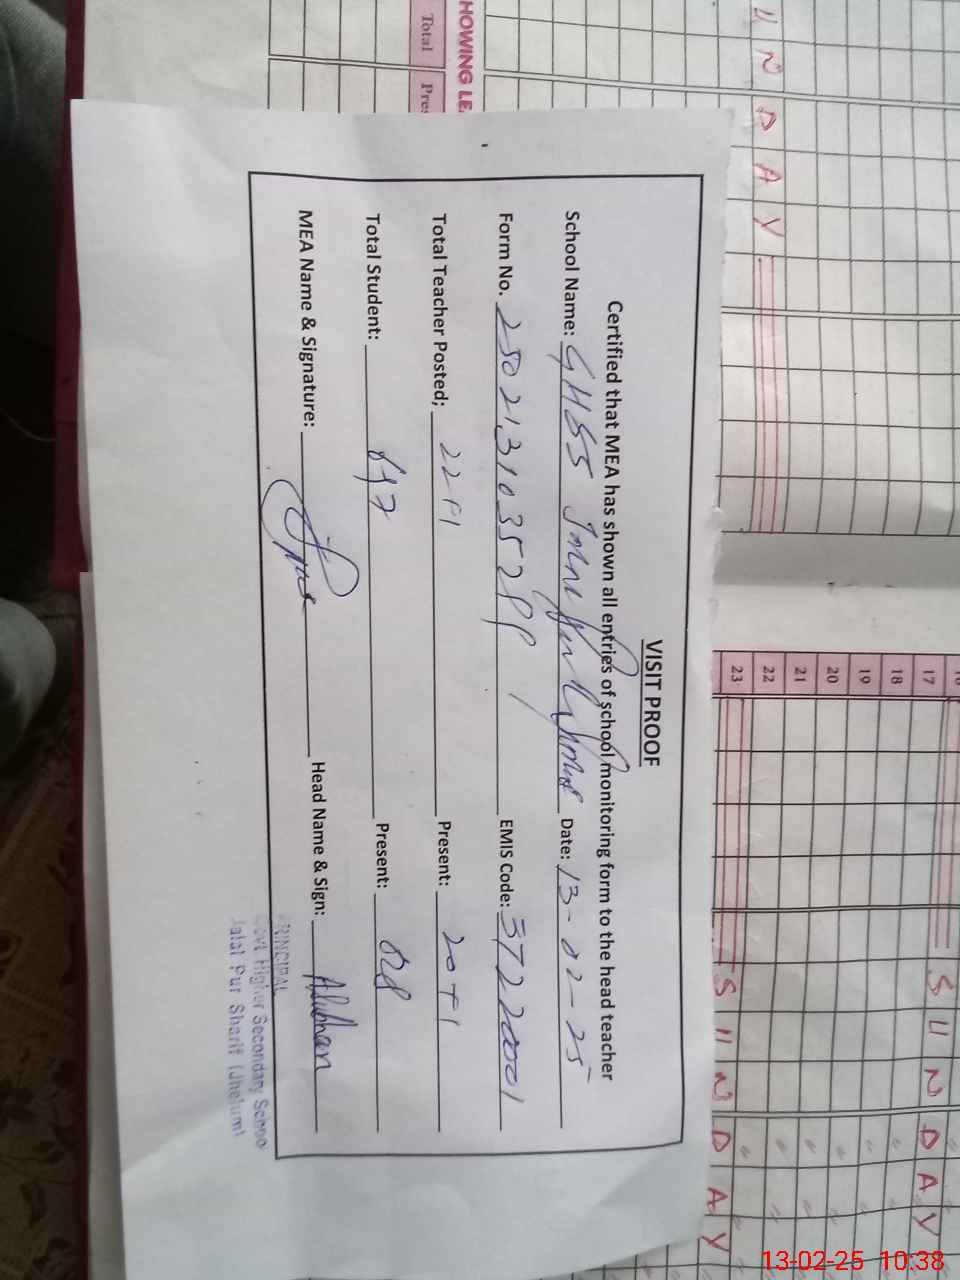 VISIT PROOF
Certified that MEA has shown all entries of school monitoring form to the head teacher
School Name: GHSS Date: 13-02-25
Form No. EMIS Code: 37220001
Total Teacher Posted; 22+1 Present: 20+1
Total Student: Present:
MEA Name & Signature: Head Name & Sign:
PRINCIPAL
Govt Higher Secondary School
Jalal Pur Sharif (Jhelum)
HOWING LE
Total Pre
S U N D A Y
S U N D A Y
U N D A Y
17
18
19
20
21
22
23
13-02-25 10:38